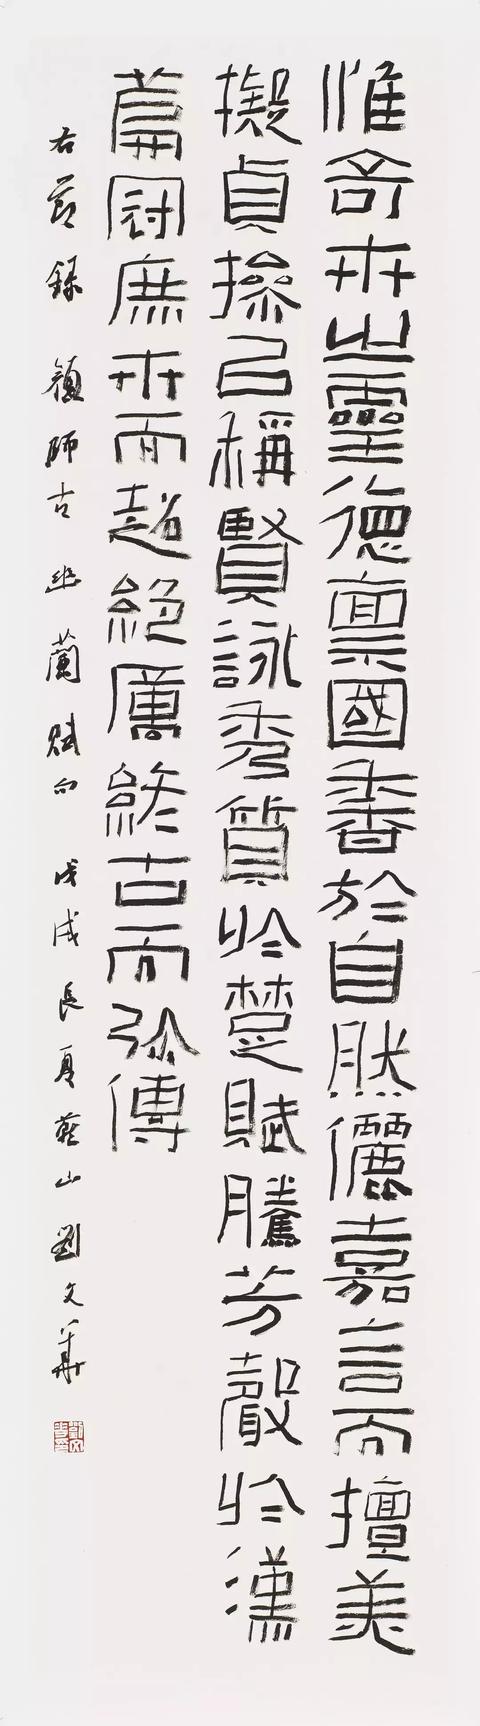 惟奇卉之靈德稟國香於自然儷嘉言而擅美
擬貞操以稱賢詠秀質於楚賦騰芳聲於漢
篇冠庶卉而超絕厲終古而弥傳
右節録顏師古幽蘭賦句 戊戌長夏燕山劉文華